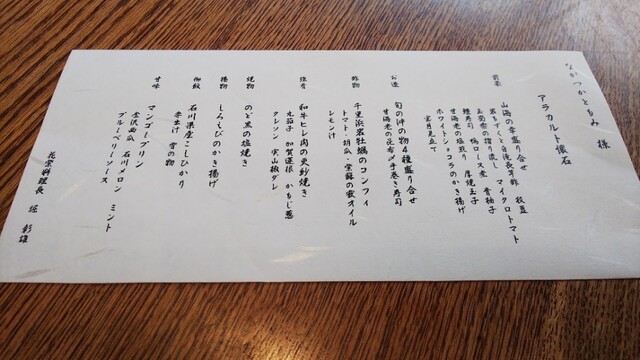 なかつかともみ 様
アラカルト懐石
前菜
山海の幸盛り合せ 枝豆
岩もずくと白瓜長芋酢 マイクロトマト
玉蜀黍の擂り流し 青柚子
鱧寿司 鴨ロース煮 厚焼玉子
甘海老の塩煎り
ホワイトショコラのかき揚げ
宝月見立て
お造
旬の沖の物4種盛り合せ
甘海老の昆布〆手巻き寿司
酢物
千里浜岩牡蠣のコンフィ
トマト・胡瓜・紫蘇の実オイル
レモン汁
強肴
和牛ヒレ肉の更紗焼き
丸茄子 加賀蓮根 かもじ葱
クレソン 実山椒ダレ
焼物
のど黒の塩焼き
揚物
しろくびのかき揚げ
御飯
石川県産こしひかり
赤出汁 香の物
甘味
マンゴープリン
金沢西瓜 石川メロン ミント
ブルーベリーソース
料理長 堀 彰雄